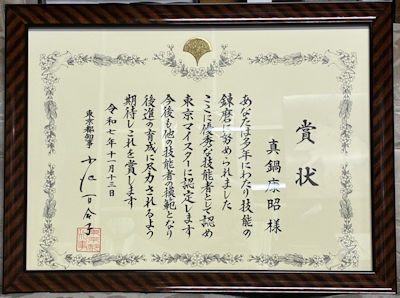 賞状
真鍋康昭様
あなたは多年にわたり技能の
錬磨に努められました
ここに優秀な技能者として認め
東京マイスターに認定します
今後も他の技能者の模範となり
後進の育成に尽力されるよう
期待しこれを賞します
令和七年十一月十三日
東京都知事 小池百合子